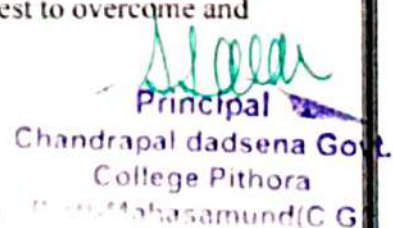 est to overcome and
Principal
Chandrapal dadsena Govt.
College Pithora
Mahasamund(C G